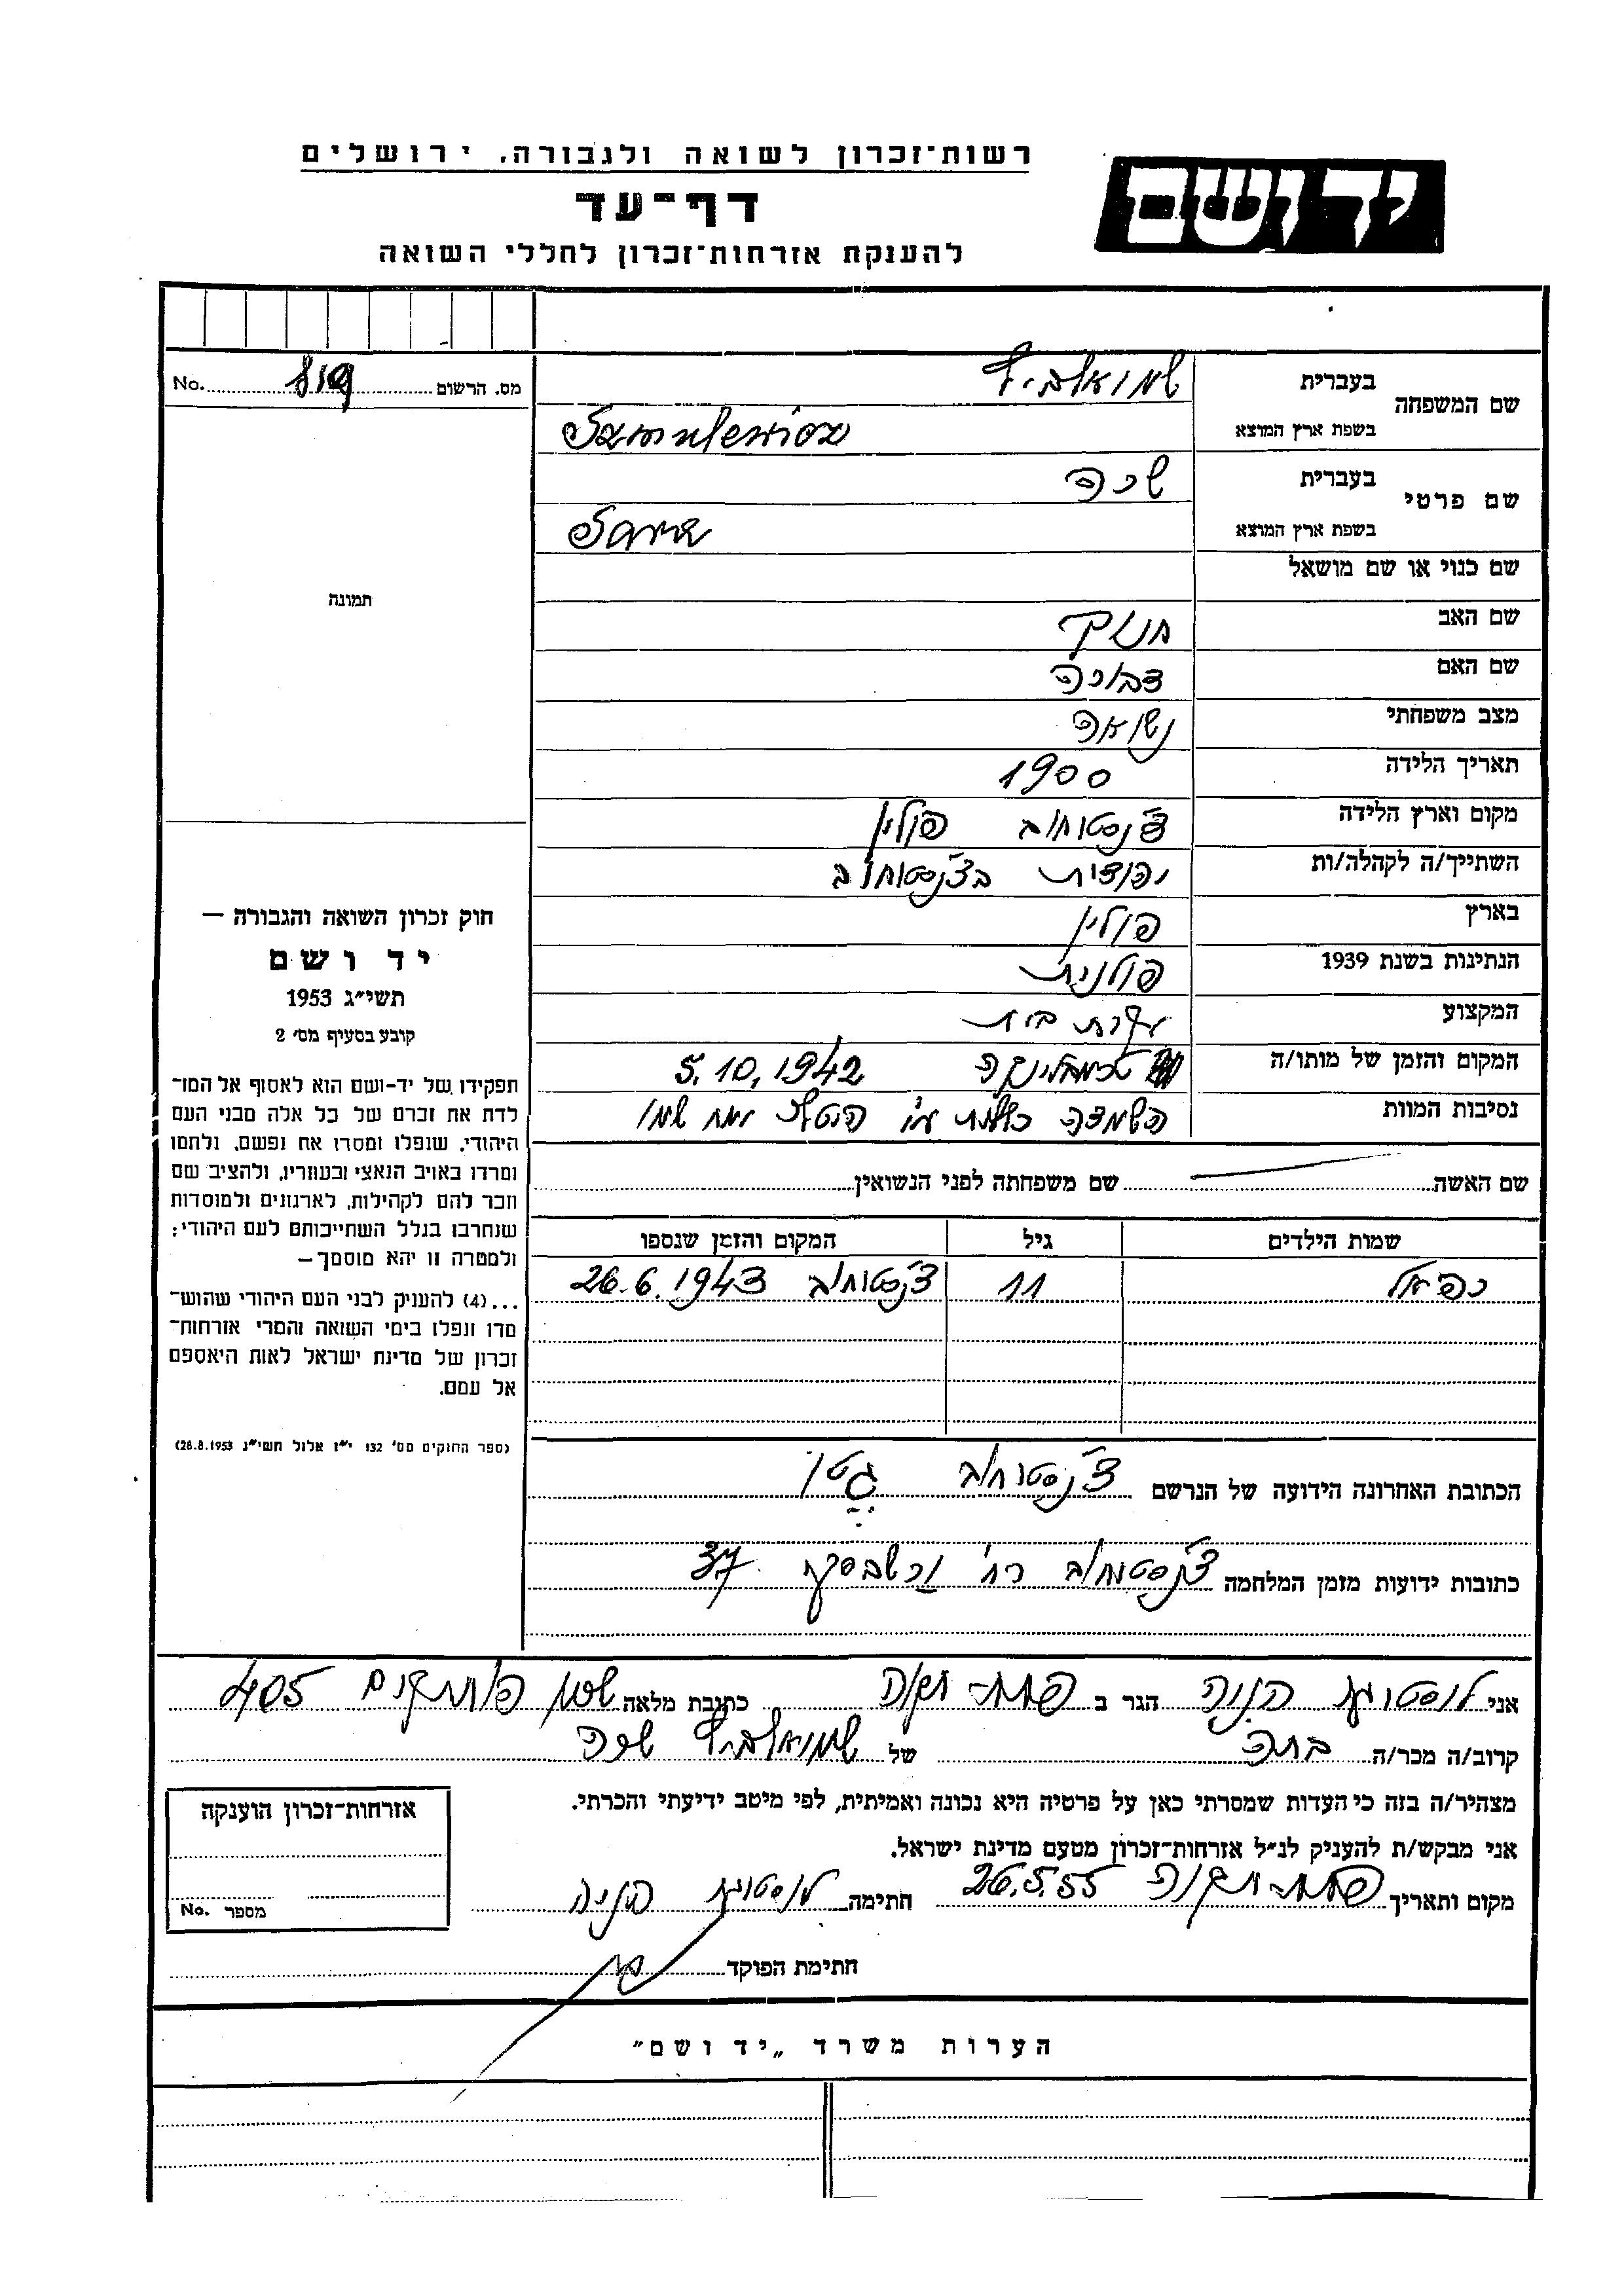 רשות־זכרון לשואה ולגבורה, ירושלים
יד ושם
דף־עד
להענקת אזרחות־זכרון לחללי השואה
מס. הרשום 819 No.
שם המשפחה
בעברית שמואלביץ
בשפת ארץ המוצא Szmulewicz
שם פרטי
בעברית שרה
בשפת ארץ המוצא Sara
שם כנוי או שם מושאל
שם האב חנוך
שם האם דבורה
מצב משפחתי נשואה
תאריך הלידה 1900
מקום וארץ הלידה צ'נסטוחוב פולין
השתייך/ה לקהלה/ות יהודית בצ'נסטוחוב
בארץ פולין
הנתינות בשנת 1939 פולנית
המקצוע עקרת בית
המקום והזמן של מותו/ה טרבלינקה 5.10.1942
נסיבות המוות השמדה
שם האשה שם משפחתה לפני הנשואין
שמות הילדים גיל המקום והזמן שנספו
רפאל 11 צ'נסטוחוב 26.6.1943
הכתובת האחרונה הידועה של הנרשם צ'נסטוחוב גטו
כתובות ידועות מזמן המלחמה צ'נסטוחוב רח' ורשבסקה 37
תמונה
חוק זכרון השואה והגבורה —
יד ושם
תשי״ג 1953
קובע בסעיף מס׳ 2
תפקידו של יד־ושם הוא לאסוף אל המו־
לדת את זכרם של כל אלה מבני העם
היהודי, שנפלו ומסרו את נפשם, נלחמו
ומרדו באויב הנאצי ובעוזריו, ולהציב שם
וזכר להם לקהילות, לארגונים ולמוסדות
שנחרבו בגלל השתייכותם לעם היהודי;
ולמטרה זו יהא מוסמך—
...(4) להעניק לבני העם היהודי שהוש־
מדו ונפלו בימי השואה והמרי אזרחות־
זכרון של מדינת ישראל לאות היאספם
אל עמם.
(ספר החוקים מס׳ 132 י״ז אלול תשי״ג 28.8.1953)
אני הניה הגר ב פתח תקוה כתובת מלאה שכון 405
קרוב/ה מכר/ה בתה של שמואלביץ שרה
מצהיר/ה בזה כי העדות שמסרתי כאן על פרטיה היא נכונה ואמיתית, לפי מיטב ידיעתי והכרתי.
אני מבקש/ת להעניק לנ״ל אזרחות־זכרון מטעם מדינת ישראל.
מקום ותאריך פתח תקוה 26.5.55 חתימה הניה
חתימת הפוקד
אזרחות־זכרון הוענקה
מספר No.
הערות משרד „יד ושם״